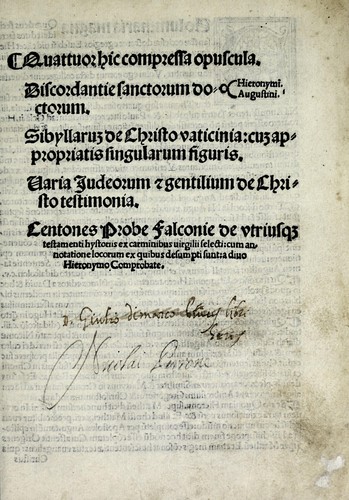 ⁋Quattuor hic compressa opuscula.
Discordantie sanctorum do⸗ Hieronymi.
ctorum. Augustini.
Sibyllaruʒ de Christo vaticinia: cuʒ ap⸗
propriatis singularum figuris.
Uaria Judeorum ⁊ gentilium de Chri⸗
sto testimonia.
Centones Probe Falconie de vtriusqʒ
testamenti hystorijs ex carminibus uirgilij selecti: cum an⸗
notatione locorum ex quibus desumpti sunt: a diuo
Hieronymo Comprobate.
D. Giulio
Nicolai